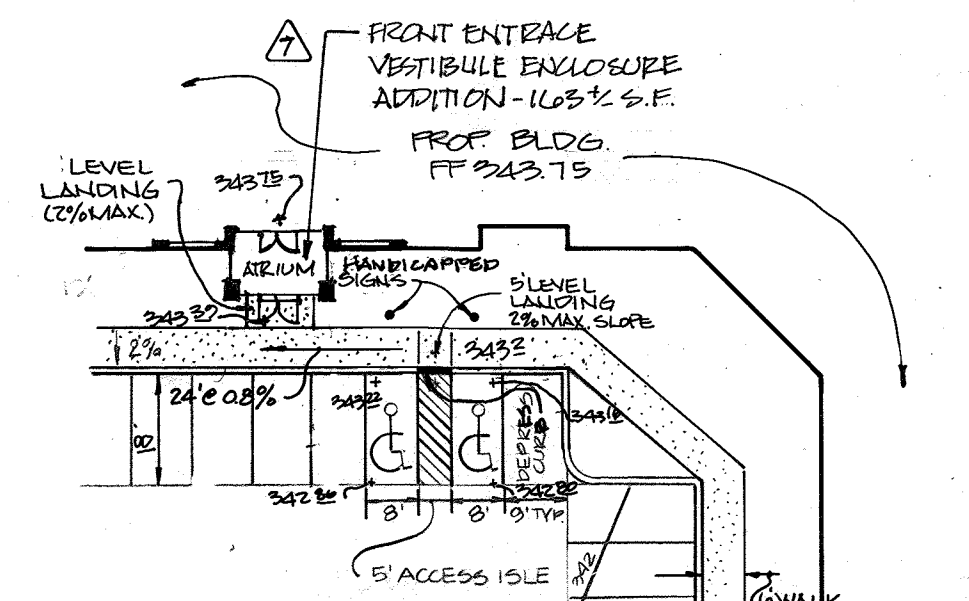 7
FRONT ENTRACE
VESTIBULE ENCLOSURE
ADDITION - 163 +/- S.F.
PROP. BLDG.
FF 343.75
LEVEL
LANDING
(2% MAX.)
343 75
ATRIUM
HANDICAPPED
SIGNS
5' LEVEL
LANDING
2% MAX. SLOPE
343 37
2%
343 2
24' @ 0.8%
343 22
343 18
DEPRESS
CURB
18'
342 86
342 80
8'
8'
9' TYP.
5' ACCESS ISLE
342
WALK